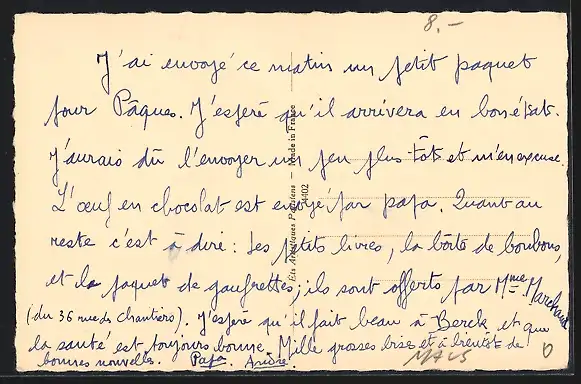 8.-
J'ai envoyé ce matin un petit paquet
pour Pâques. J'espère qu'il arrivera en bon état.
J'aurais dû l'envoyer un peu plus tôt et m'en excuse.
L'œuf en chocolat est envoyé par papa. Quant au
reste c'est à dire : les petits livres, la boîte de bonbons,
et le paquet de gaufrettes ; ils sont offerts par Mme Marchand
(du 36 rue des Chantiers). J'espère qu'il fait beau à Berck et que
la santé est toujours bonne. Mille grosses bises et à bientôt de
bonnes nouvelles. Papa. André.
Ets Artistiques Parisiens — Made in France